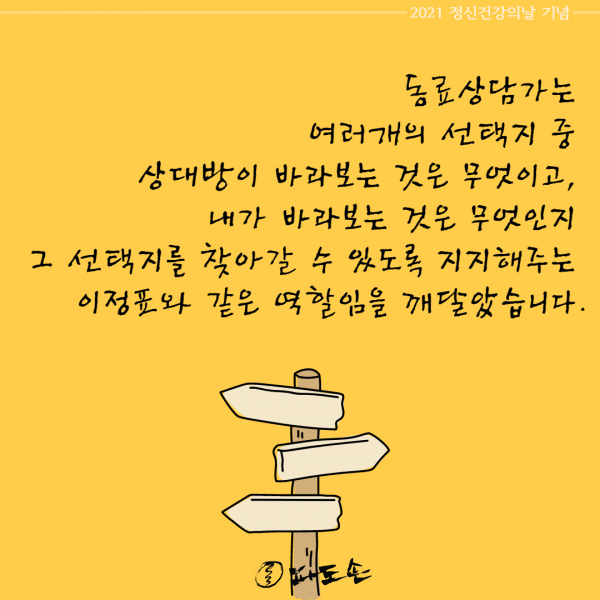 2021 정신건강의날 기념
동료상담가는
여러개의 선택지 중
상대방이 바라보는 것은 무엇이고,
내가 바라보는 것은 무엇인지
그 선택지를 찾아갈 수 있도록 지지해주는
이정표와 같은 역할임을 깨달았습니다.
파도손